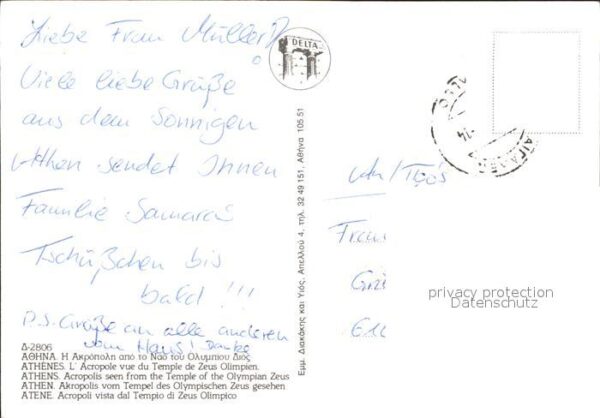 Liebe Frau Müller!
Viele liebe Grüße
aus dem Sonnigen
Athen sendet Ihnen
Familie Samaras
Tschüßchen bis
bald !!!
P.S. Grüße an alle anderen
vom Haus! Danke
Δ-2806
ΑΘΗΝΑ. Η Ακρόπολη από το Ναό του Ολυμπίου Διός
ATHÈNES. L' Acropole vue du Temple de Zeus Olimpien.
ATHENS. Acropolis seen from the Temple of the Olympian Zeus
ATHEN. Akropolis vom Tempel des Olympischen Zeus gesehen
ATENE. Acropoli vista dal Tempio di Zeus Olimpico
DELTA
Εμμ. Διακάκης και Υιός, Απελλού 4, τηλ. 32 49 151, Αθήνα 105 51
An/Προς
privacy protection
Datenschutz